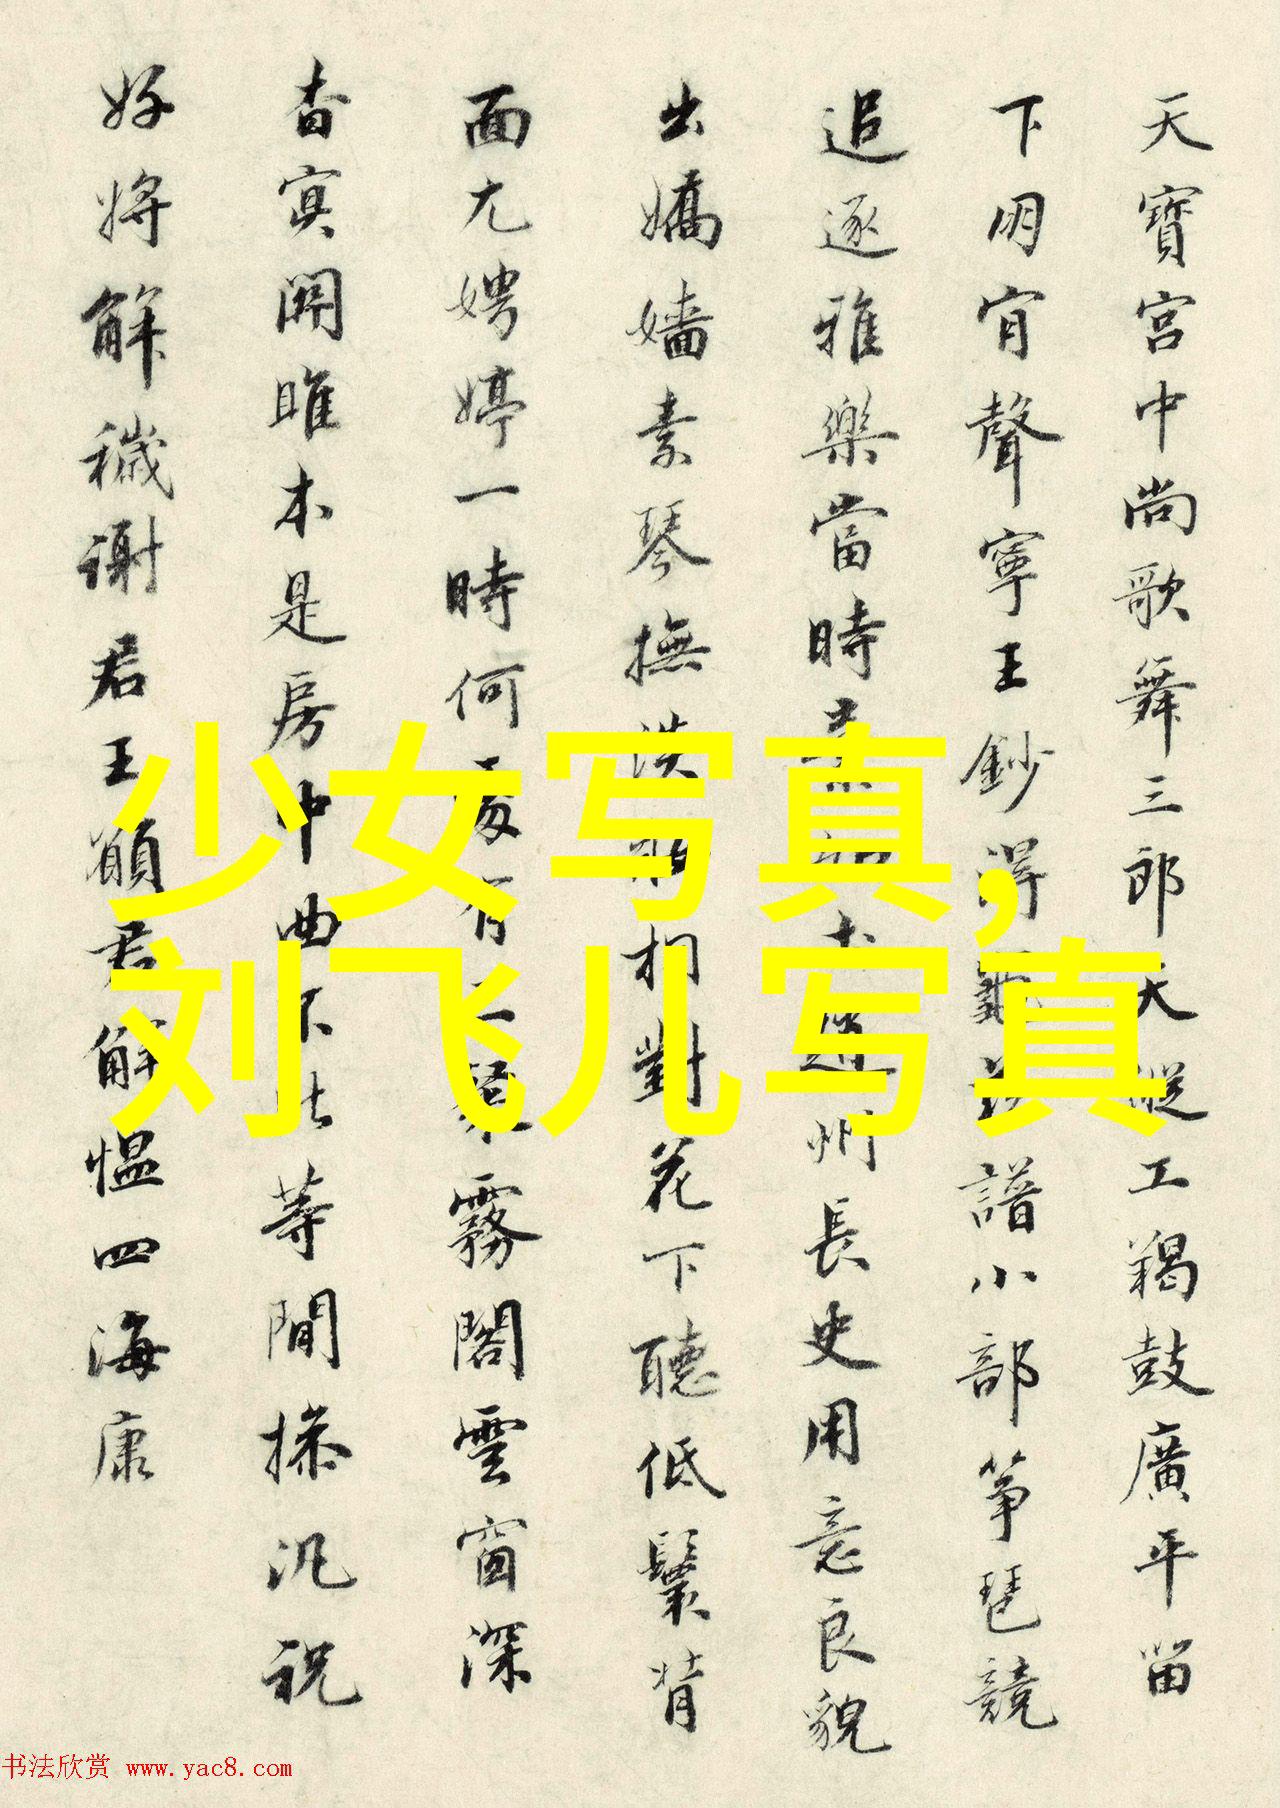 天寶宮中尚歌舞三郎天縱工羯鼓廣平留
下明宵聲寧王鈔得譜小部箏琶競
追逐雅樂當時州長史用意良貌
出嬌嬙素琴撫淡相對花下聽低鬟背
面尤娉婷一時何處有霧閣雲窗深
杳冥關雎本是房中曲不比等閒操汎祝
好將解穢謝君王願君解愠四海康
少女写真,
刘飞儿写真
书法欣赏 www.yac8.com